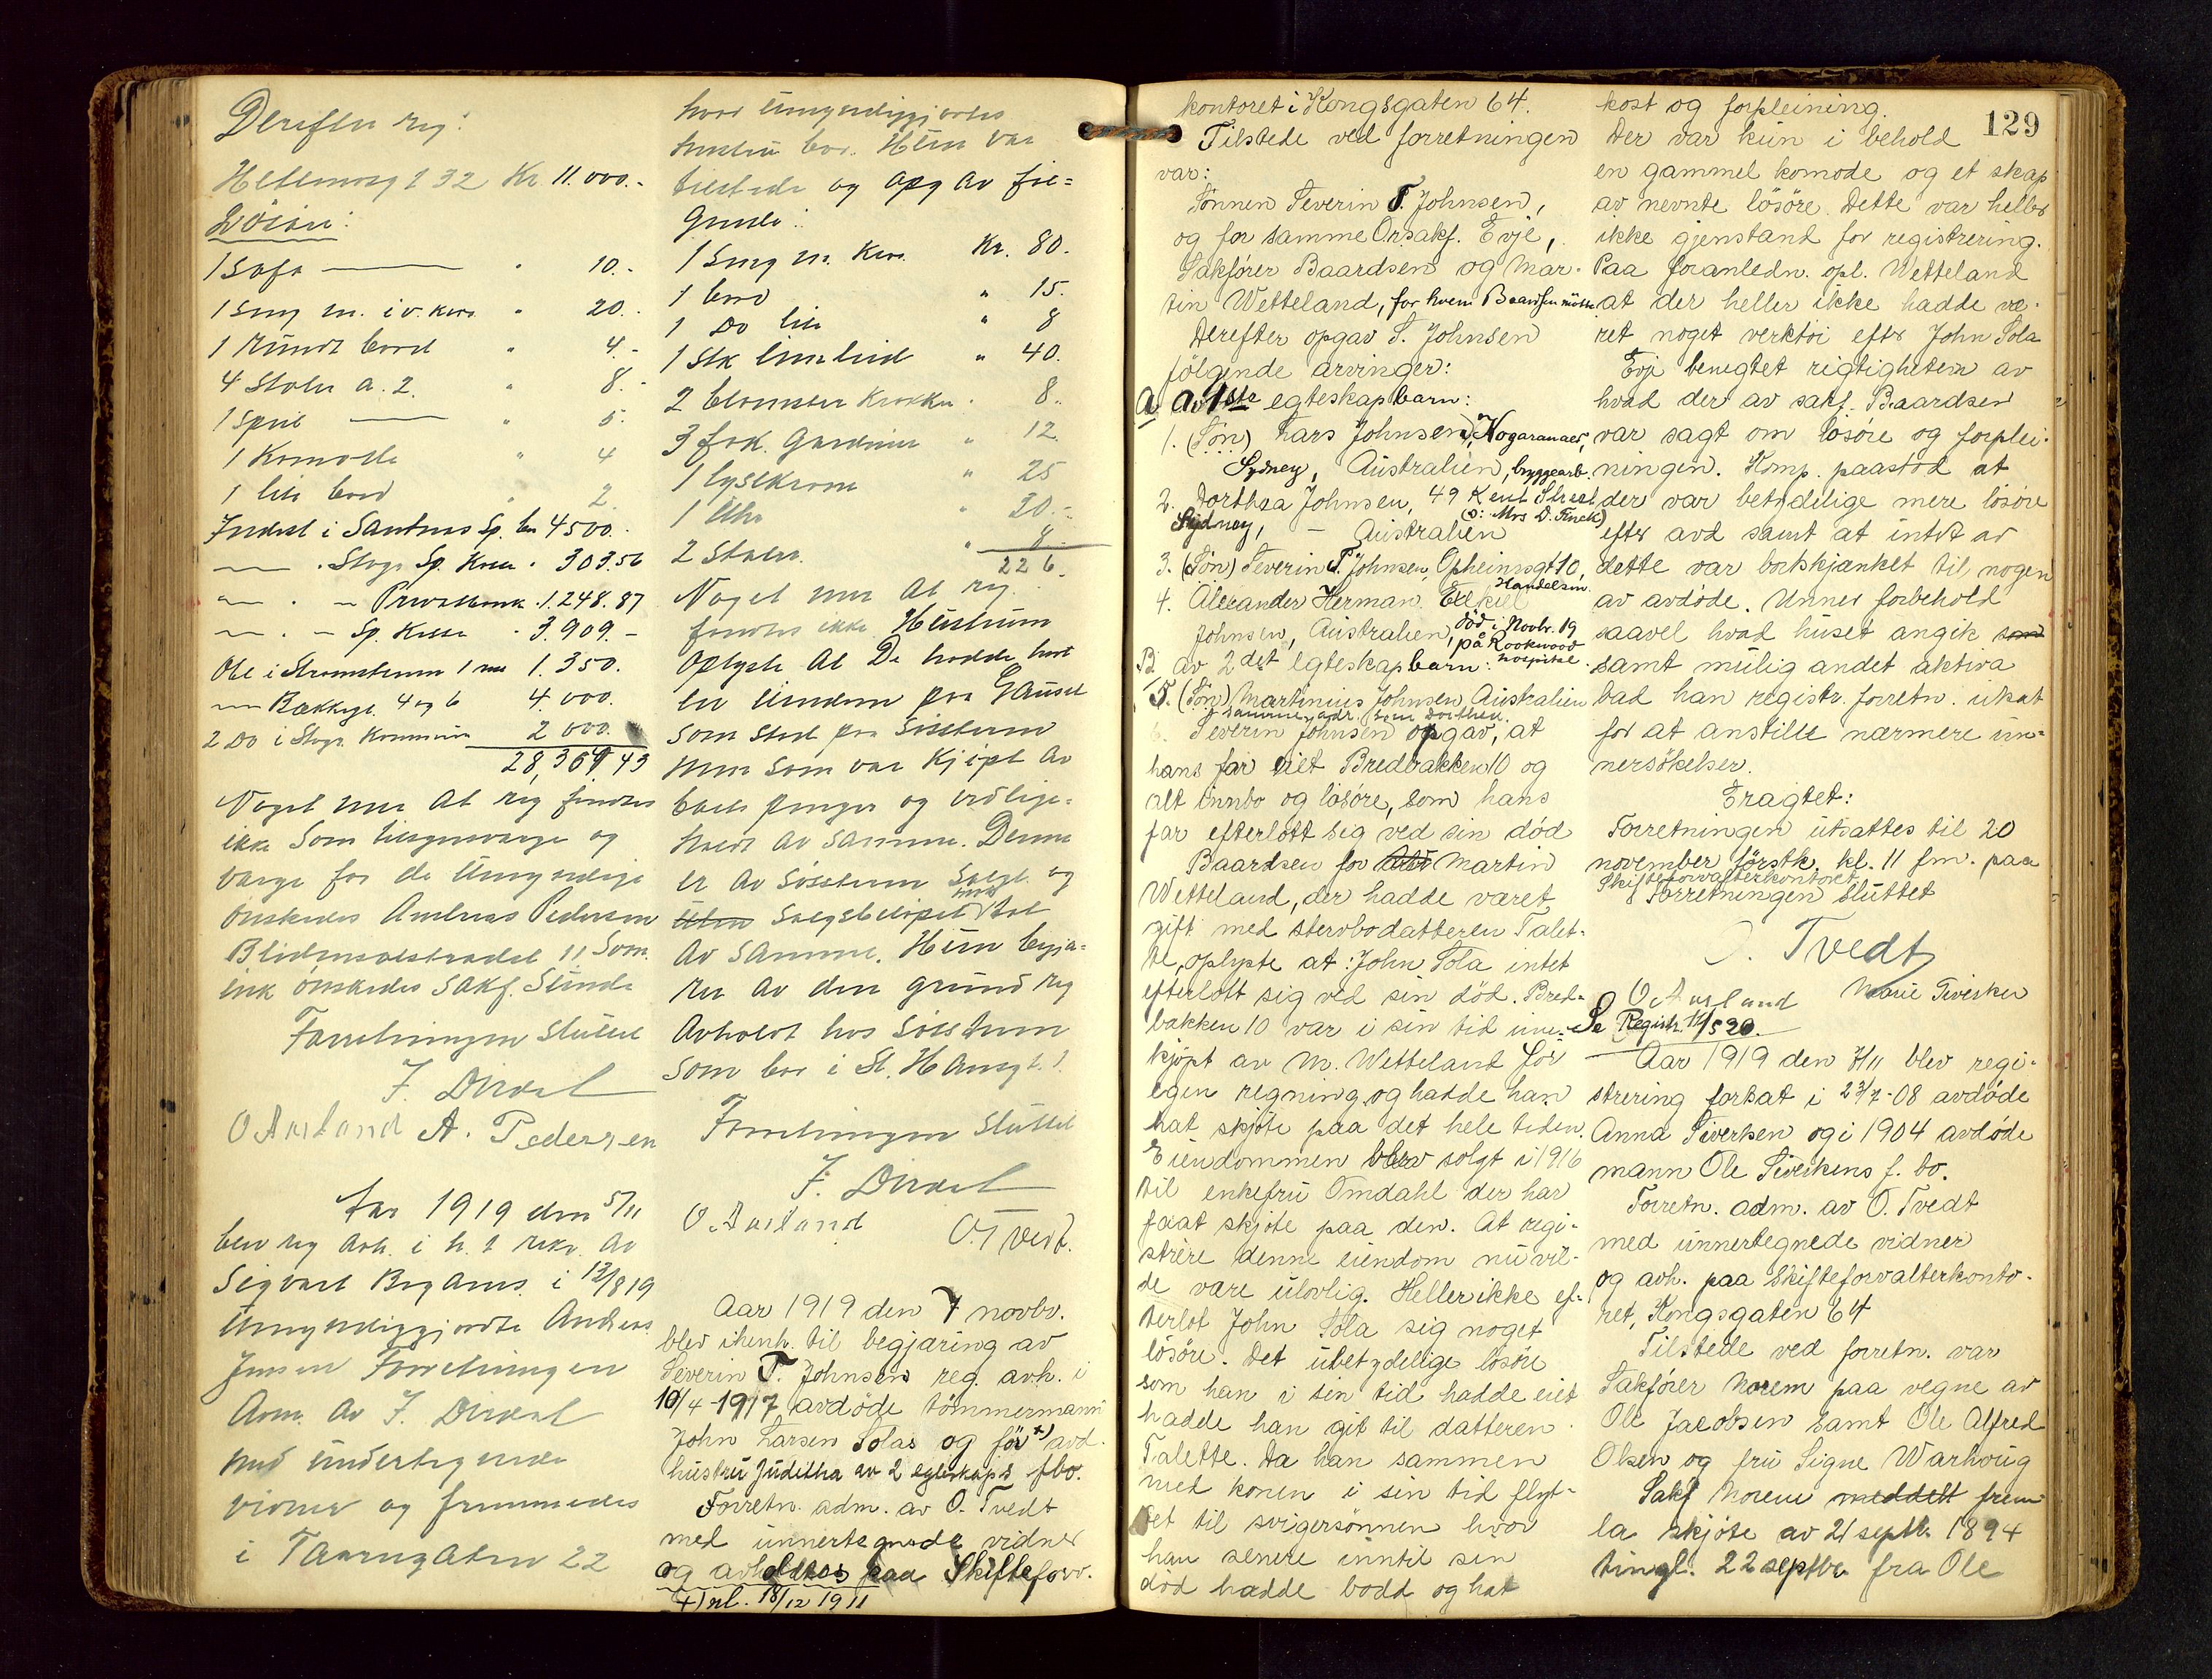 Derefter reg:
Hetlevig 132 Kr. 11.000.-
Lösøre:
1 Sofa " 10.-
1 Seng m. i v. kass. " 20.-
1 Rundt bord " 4.-
4 Stoler a. 2. " 8.-
1 Speil " 5.
1 Komode " 4
1 lite bord " 2.
Indest i Sandnes Sp. 4500.
" Stvgr. Sp. Kasse " 303.56
" . " Privatbank . 1.248.87
" . " Sp. Kasse . 3.909.-
Obl i 1 1.350.
" 4 og 6 4.000.
2 Do i Stvgr. Kommune 2000.
28,369,43
Noget mer at reg fandtes
ikke Som tilsynsværge og
værge for de Umyndige
önskedes Andreas Pedersen
Blidensolstrædet 11 Som
önskedes Sakf. Sunde
Forretningen Sluttet
O Aarland A. Pedersen
Aar 1919 den 5/11
blev reg Avh. i h. t rekv. Av
Sigvart i 13/8 19
Umyndiggjordte Andreas
Jensen Forretningen
Adm. Av
med undertegnede
vidner og fremmedes
i Taarngaten 22
hvor Umyndiggjortes
hustru bor. Hun var
tilstede og Opg Av föl=
gende:
1 Seng m. Kr. 80.
1 bord " 15.
1 Do lite " 8
1 Stk " 40.
2 blomster Krukker . 8.
3 fok. Gardiner " 12.
1 lysekrone " 25
1 Uhr " 30.-
2 Stoler " 8.-
226.-
Noget mer At reg.
fandtes ikke Hustruen
Oplyste At De hadde hat
en Eiendom paa Gausel
Som Stod paa Söstrenes
Som var Kjöpt Av
penger og vedlige=
holdt Av Samme. Denne
er Av Söstrenes Solgt og
Salgsbelöpet
Av Samme. Hun begjæ=
rer Av den grund reg
Avholdt hos Söstrene
Som bor i St. Hansgt.
Forretningen Sluttet
O. Aarland O. Tvedt.
Aar 1919 den 7 novbr.
blev ihenh. til begjæring av
Severin T. Johnsen reg. avh. i
10/4-1917 avdöde tömmermann
John Larsen Solas og för +) avd.
hustru Juditha av 2 egteskaps f.bo.
Forretn. adm. av O. Tvedt
med unnertegnede vidner
og avholdtes paa Skifteforv.
+) nl. 18/12 1911
129
kontoret i Kongsgaten 64.
Tilstede ved forretningen
var:
Sönnen Severin T. Johnsen,
og for samme O.r.sakf. Evje,
Sakförer Baardsen og Mar-
tin Wetteland, for hvem Baardsen mötte
Derefter opgav S. Johnsen
fölgende arvinger:
A Av 1ste egteskap barn:
1. (Sön) Lars Johnsen, Kogaranaes,
Sydney, Australien, byggearb.
2. Dorthea Johnsen, 49 Kent Street
(o: Mrs D. Finck)
Sydney, - Australien
3. (Sön) Severin T. Johnsen, Opheimsgt 10,
Handelsm.
4. Alexander Herman Ezekiel
Johnsen, Australien, död i Novbr. 19
på Rookwood
hospital.
B av 2det egteskap barn:
5. (Sön) Martinius Johnsen Australien
samme adr. som Dorthea.
6. Severin Johnsen opgav, at
hans far eiet Bredbakken 10 og
alt innbo og lösöre, som hans
far efterlott sig ved sin död
Baardsen for Martin
Wetteland, der hadde været
gift med stervbodatteren Talet-
te, oplyste at: John Sola intet
efterlott sig ved sin död. Bred-
bakken 10 var i sin tid inne-
kjöpt av M. Wetteland for
egen regning og hadde han
hat skjöte paa det hele tiden.
Eiendommen blev solgt i 1916
til enkefru Omdahl der har
faat skjöte paa den. At regi-
strere denne eiendom nu vil-
de være ulovlig. Heller ikke ef-
terlot John Sola sig noget
lösöre. Det ubetydelige lösöre
som han i sin tid hadde eiet
hadde han git til datteren
Talette. Da han sammen
med konen i sin tid flyt-
tet til svigersönnen hvor
han senere inntil sin
död hadde bodd og hat
kost og forpleining.
Der var kun i behold
en gammel komode og et skap
av nevnte lösöre. Dette var heller
ikke gjenstand for registrering.
Paa foranledn. opl. Wetteland
at der heller ikke hadde væ-
ret noget verktöi efter John Sola
Evje benegtet rigtigheten av
hvad der av sakf. Baardsen
var sagt om lösöre og forplei-
ningen. Komp. paastod at
der var betydelige mere lösöre
efter avd samt at intet av
dette var bortskjænket til nogen
av avdöde. Unner forbehold
saavel hvad huset angik som
samt mulig andet aktiva
bad han registr. forretn. utsat
for at anstille nærmere un-
nersökelser.
Eragtet:
Forretningen utsattes til 20
november förstk. kl. 11 fm. paa
Skifteforvalterkontoret
Forretningen sluttet
O. Tvedt
O. Aarland Marie Tvesken
Se Registr. 11/5 20.
Aar 1919 den 7/11 blev regi-
strering fortsat i 23/7-08 avdöde
Anna Siverken og i 1904 avdöde
mann Ole Siverkens f. bo.
Forretn. adm. av O. Tvedt
med unnertegnede vidner
og avh. paa Skifteforvalterkonto-
ret, Kongsgaten 64
Tilstede ved forretn. var
Sakförer Norem paa vegne av
Ole Jacobsen samt Ole Alfred
Olsen og fru Signe Warhoug
Sakf Norem meddelt frem-
la skjöte av 21 septb. 1894
tingl. 22 septbr fra Ole